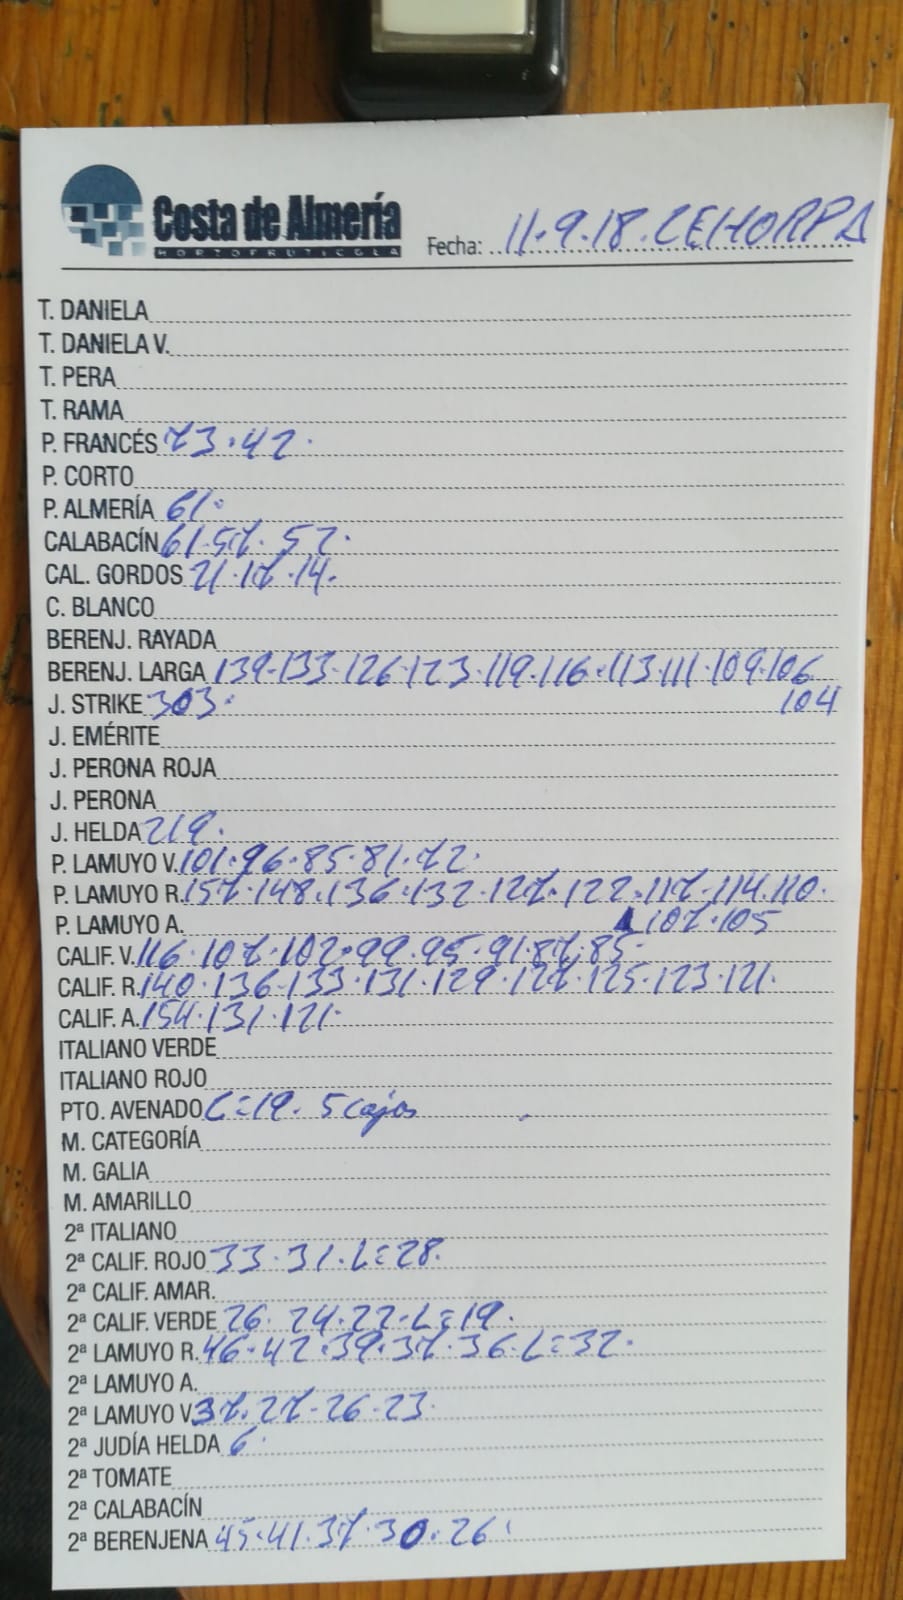 Costa de Almería
HORTOFRUTICOLA
Fecha: 11.9.18. CEHORPA
T. DANIELA
T. DANIELA V.
T. PERA
T. RAMA
P. FRANCÉS 73.42.
P. CORTO
P. ALMERÍA 61.
CALABACÍN 61.57.52.
CAL. GORDOS 21.17.14.
C. BLANCO
BERENJ. RAYADA
BERENJ. LARGA 139.133.126.123.119.116.113.111.109.106
104
J. STRIKE 303.
J. EMÉRITE
J. PERONA ROJA
J. PERONA
J. HELDA 219.
P. LAMUYO V. 101.96.85.81.72.
P. LAMUYO R. 157.148.136.132.127.122.117.114.110.
107.105
P. LAMUYO A.
CALIF. V. 116.107.102.99.95.91.87.85.
CALIF. R. 140.136.133.131.129.127.125.123.121.
CALIF. A. 154.131.121.
ITALIANO VERDE
ITALIANO ROJO
PTO. AVENADO L=19. 5 cajas
M. CATEGORÍA
M. GALIA
M. AMARILLO
2ª ITALIANO
2ª CALIF. ROJO 33.31.L=28.
2ª CALIF. AMAR.
2ª CALIF. VERDE 26.24.22.L=19.
2ª LAMUYO R. 46.42.39.37.36.L=32.
2ª LAMUYO A.
2ª LAMUYO V. 37.27.26.23.
2ª JUDÍA HELDA 6.
2ª TOMATE
2ª CALABACÍN
2ª BERENJENA 45.41.37.30.26.